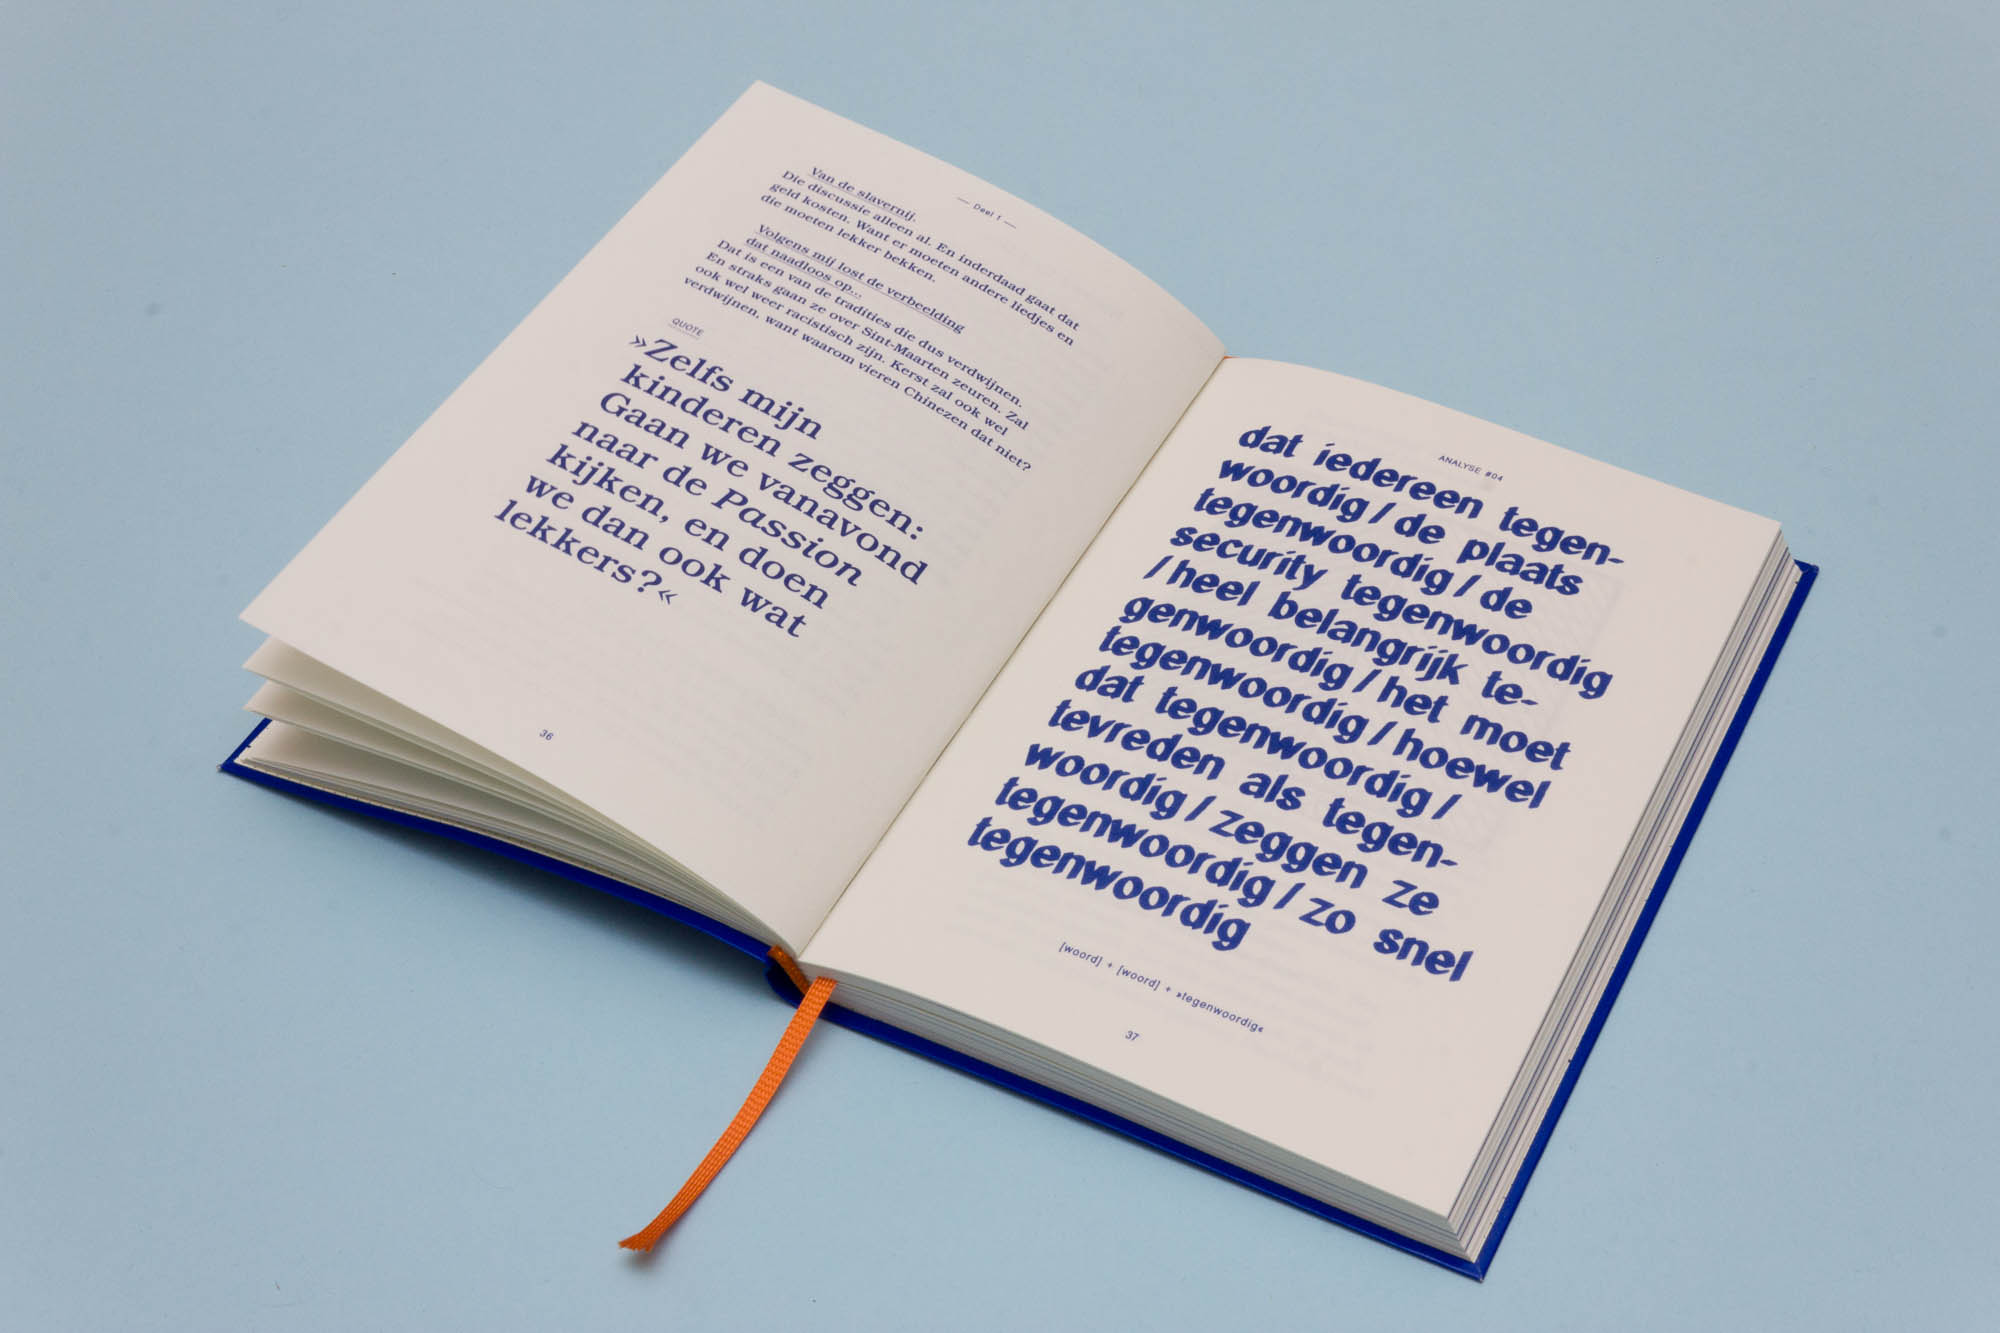 — Deel 1 —
Van de slavernij.
Die discussie alleen al. En inderdaad gaat dat
geld kosten. Want er moeten andere liedjes en
die moeten lekker bekken.
Volgens mij lost de verbeelding
dat naadloos op...
Dat is een van de tradities die dus verdwijnen.
En straks gaan ze over Sint-Maarten zeuren. Zal
ook wel weer racistisch zijn. Kerst zal ook wel
verdwijnen, want waarom vieren Chinezen dat niet?
QUOTE
»Zelfs mijn
kinderen zeggen:
Gaan we vanavond
naar de Passion
kijken, en doen
we dan ook wat
lekkers?«
36
ANALYSE #04
dat iedereen tegen-
woordig / de plaats
tegenwoordig / de
security tegenwoordig
/ heel belangrijk te-
genwoordig / het moet
tegenwoordig / hoewel
dat tegenwoordig /
tevreden als tegen-
woordig / zeggen ze
tegenwoordig / zo snel
tegenwoordig
[woord] + [woord] + »tegenwoordig«
37